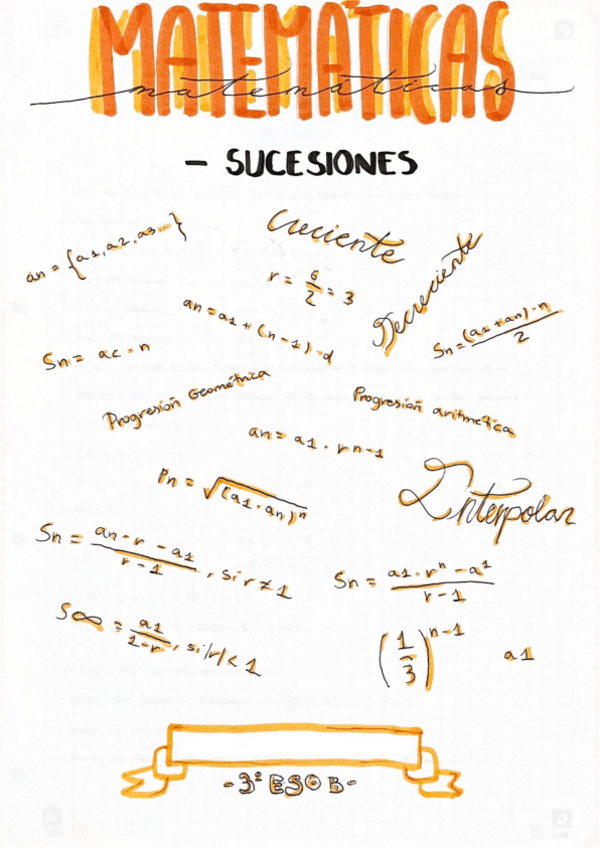 MATEMÁTICAS
matemáticas
- SUCESIONES
an = {a1, a2, a3...}
Creciente
r = 6/2 = 3
Decreciente
an = a1 + (n-1)·d
Sn = (a1 + an)·n / 2
Sn = ac · n
Progresión Geométrica
Progresión aritmética
an = a1 · rn-1
Pn = √(a1·an)^n
Interpolar
Sn = an·r - a1 / r-1, si r≠1
Sn = a1·r^n - a^1 / r-1
S∞ = a1 / 1-r, si |r| < 1
(1/3)^n-1
a1
-3º ESO B-